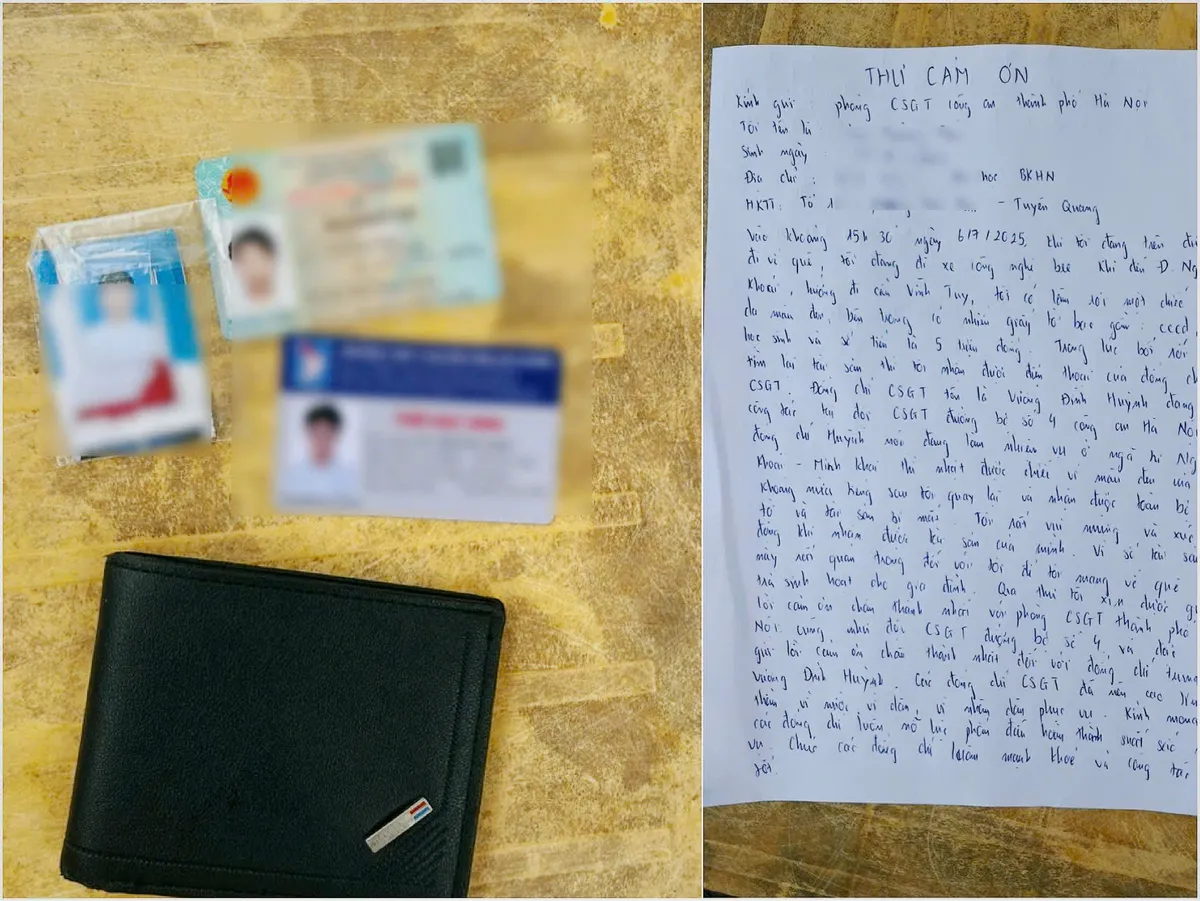 THƯ CẢM ƠN
Kính gửi phòng CSGT công an thành phố Hà Nội
Tôi tên là
Sinh ngày
Địa chỉ : học BKHN
HKTT: Tổ 1 - Tuyên Quang
Vào khoảng 15h 30' ngày 6/7/2025, khi tôi đang trên
đi về quê, tôi đang đi xe công nghệ bee khi đến Đ.
Khoái, hướng đi cầu Vĩnh Tuy, tôi có làm rơi một chiếc
da màu đen, bên trong có nhiều giấy tờ bao gồm: cccd
học sinh và số tiền là 5 triệu đồng. Trong lúc bối rối
tìm lại tài sản thì tôi nhận được điện thoại của đồng
CSGT. Đồng chí CSGT tên là Vương Đình Huỳnh đang
công tác tại đội CSGT đường bộ số 4 công an Hà
đồng chí Huỳnh nói đang làm nhiệm vụ ở ngã tư
Khoái - Minh Khai thì nhặt được chiếc ví màu đen của
Không nửa tiếng sau tôi quay lại và nhận được toàn bộ
tờ và tài sản bị mất. Tôi rất vui mừng và xúc
động khi nhận được tài sản của mình. Vì số tài
này rất quan trọng đối với tôi để tôi mang về quê
trả sinh hoạt cho gia đình. Qua thư tôi xin được
lời cảm ơn chân thành nhất với phòng CSGT thành phố
Nội cũng như đội CSGT đường bộ số 4, và
gửi lời cảm ơn chân thành nhất đối với đồng chí
Vương Đình Huỳnh. Các đồng chí CSGT đã nêu cao
thần, vì nước vì dân, vì nhân dân phục vụ. Kính mong
các đồng chí luôn nỗ lực phấn đấu hoàn thành xuất sắc
vụ. Chúc các đồng chí luôn mạnh khoẻ và công tác
tốt.